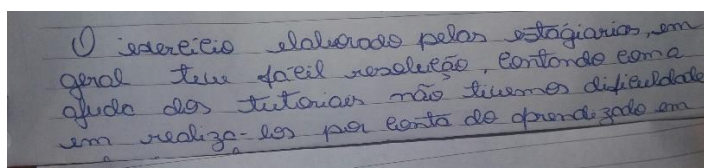 O exercício elaborado pelas estagiarias, em
geral teve fácil resolução, contando com a
ajuda dos tutoriais não tivemos dificuldade
em realiza-los por conta do aprendizado em